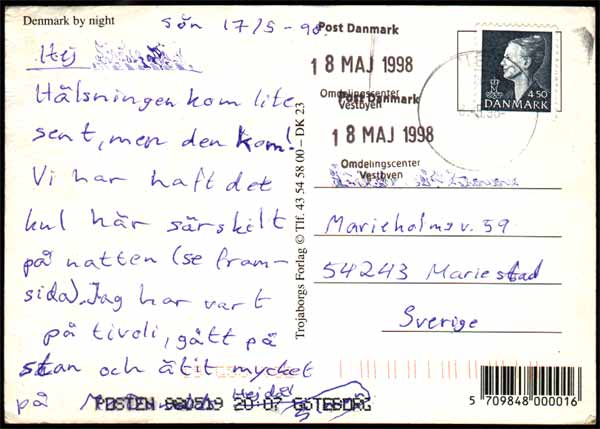 Denmark by night
Sön 17/5-98
Hej
Hälsningen kom lite
sent, men den kom!
Vi har haft det
kul här särskilt
på natten (se fram-
sida). Jag har vart
på tivoli, gått på
stan och ätit mycket
på
Hejdå!
Trojaborgs Forlag © Tlf. 43 54 58 00 – DK 23
Post Danmark
18 MAJ 1998
Omdelingscenter
Vestbyen
Post Danmark
18 MAJ 1998
Omdelingscenter
Vestbyen
4.50
DANMARK
Marieholmsv. 59
54243 Mariestad
Sverige
POSTEN 980519 20-07 GÖTEBORG
5 709848 000016